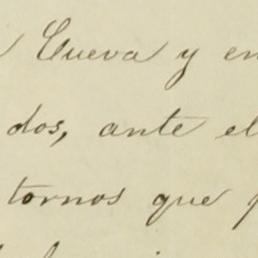 Cueva y en
dos, ante el
tornos que p